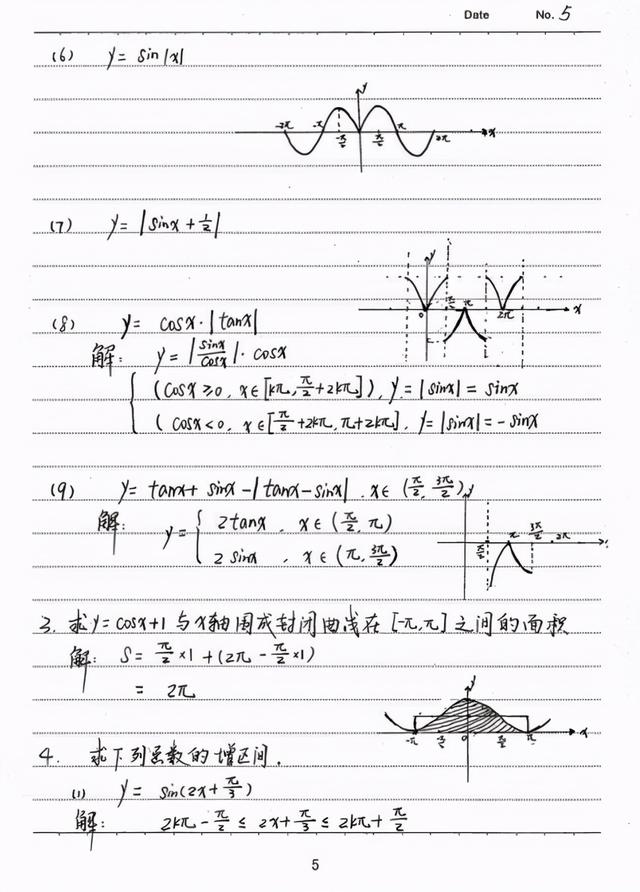 Date No. 5
(6) y = sin|x|
y
-2π -π -π/2 π/2 π 2π x
(7) y = |sinx + 1/2|
y
0 π 2π x
(8) y = cosx·|tanx|
解: y = |sinx/cosx|·cosx
{ (cosx ≥ 0, x∈[kπ, π/2+2kπ]), y = |sinx| = sinx
( cosx < 0, x∈[π/2+2kπ, π+2kπ], y = |sinx| = -sinx
(9) y = tanx + sinx - |tanx - sinx|, x∈(π/2, 3π/2)
解: y = { 2tanx, x∈(π/2, π)
2sinx, x∈(π, 3π/2)
y
π/2 π 3π/2 2π
3. 求y=cosx+1与x轴围成封闭曲线在[-π,π]之间的面积
解: S = π/2×1+(2π-π/2×1)
= 2π
y
-π -π/2 0 π/2 π x
4. 求下列函数的增区间.
(1) y = sin(2x+π/3)
解: 2kπ-π/2 ≤ 2x+π/3 ≤ 2kπ+π/2
5